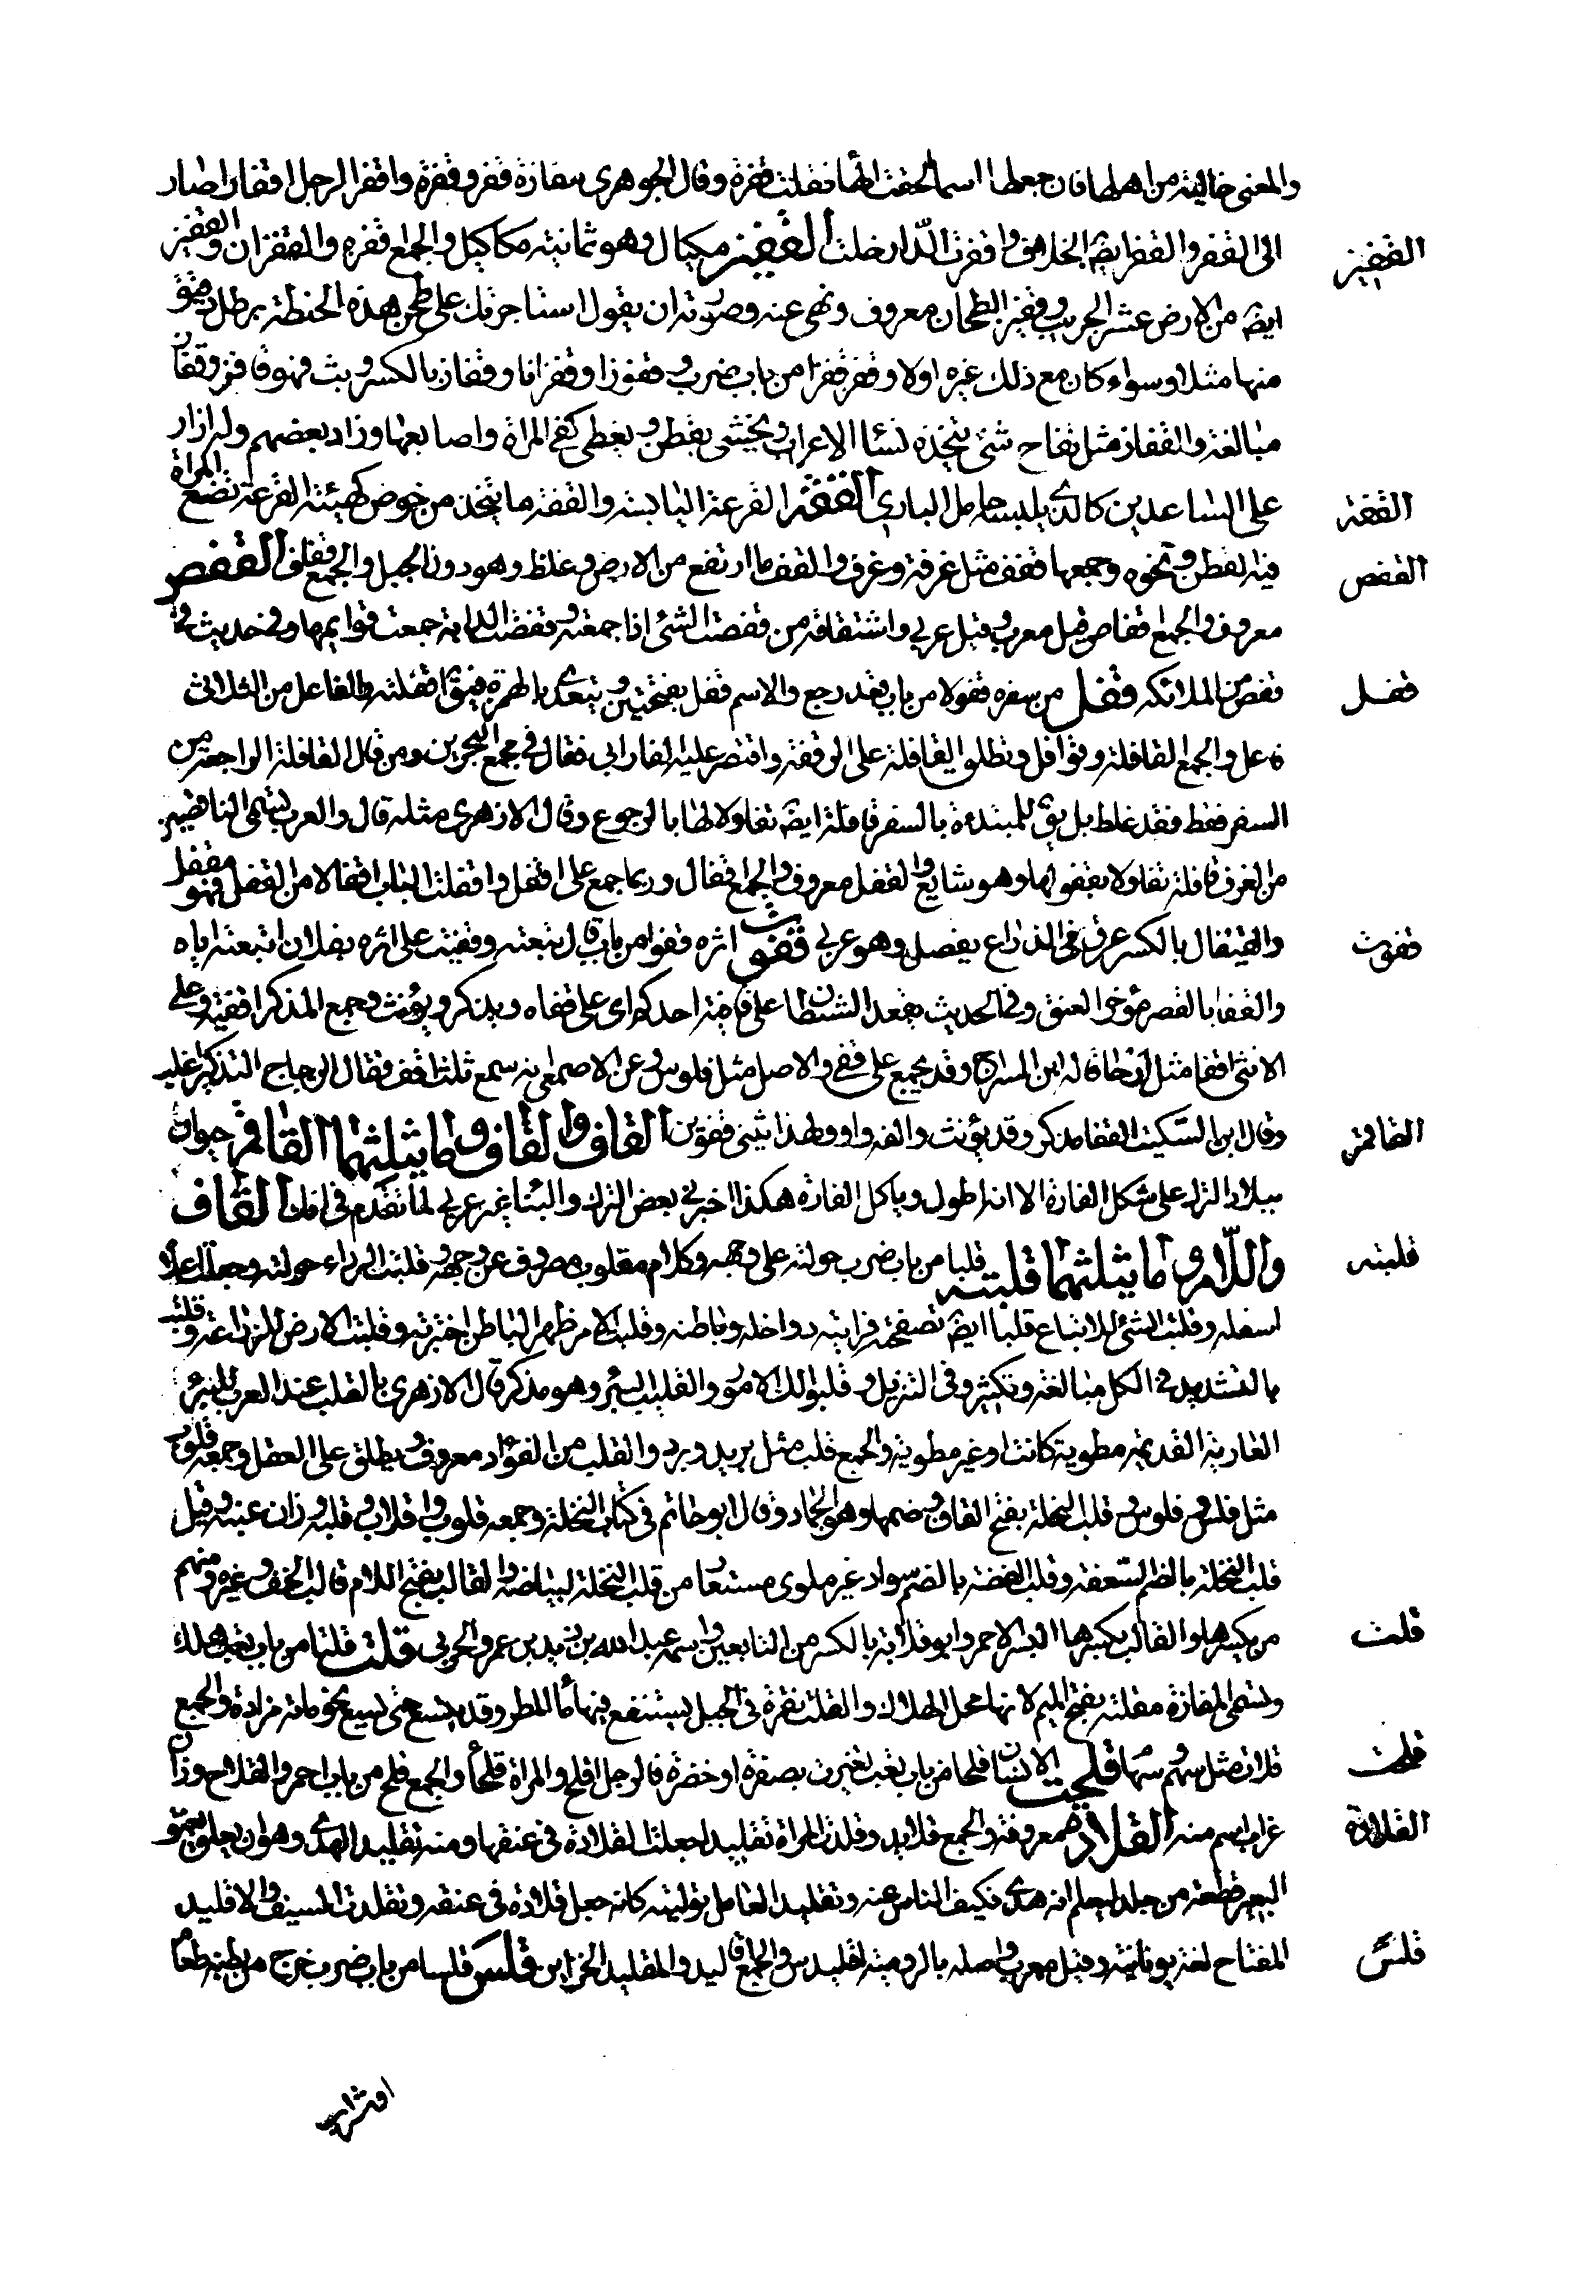 والمعنى خالية من اهلها فان جعلها اسما الحقت الهاء فقلت قفرة وقال الجوهري مفازة قفر وقفرة واقفر الرجل اقفارا صار
القفيز
الى القفر والقفر ايضا الخلا واقفرت الدار خلت القفيز مكيال وهو ثمانية مكاكيك والجمع اقفزة والقفزان والقفيز
ايضا من الارض عشر الجريب وقفيز الطحان معروف ونهى عنه وصورته ان يقول استاجرتك على طحن هذه الحنطة برطل دقيق
منها مثلا وسواء كان مع ذلك غيره اولا وقفز قفزا من باب ضرب وقفوزا وقفزانا وقفازا بالكسر وثب فهو قافز وقفاز
مبالغة والقفاز مثل تفاح شئ يتخذه نساء الاعراب ويحشى بقطن ويغطى كفى المراة واصابعها وزاد بعضهم وله ازرار
القفة
على الساعدين كالذي يلبسه حامل البازي القفة القرعة اليابسة والقفة ما يتخذ من خوص كهيئة القرعة تضع المراة
القفص
فيه القطن ونحوه وجمعها قفف مثل غرفة وغرف والقف ما ارتفع من الارض وغلظ وهو دون الجبل والجمع قفاف القفص
معروف والجمع اقفاص قيل معرب وقيل عربي واشتقاقه من قفصت الشئ اذا جمعته وقفصت الدابة جمعت قوايمها وفي حديث في
قفل
قفص من الملائكة قفل من سفره قفولا من باب قعد رجع والاسم قفل بفتحتين ويتعدى بالهمزة فيق اقفلته والفاعل من الثلاثى
قافل والجمع القافلة وقوافل وتطلق القافلة على الرفقة واقتصر عليه الفارابي فقال في مجمع البحرين ومن قال القافلة الراجعة من
السفر فقط فقد غلط بل يق للمبتدءة بالسفر قافلة ايضا تفاولا لها بالرجوع وقال الازهري مثله قال والعرب تسمى الناهضين
من الغزو قافلة تفاولا بقفولها وهو شايع والقفل معروف والجمع اقفال وربما جمع على اقفل واقفلت الباب اقفالا من القفل فهو مقفل
قفوت
والقيفال بالكسر عرق في الذراع يفصد وهو عربي قفوت اثره قفوا من باب قال تبعته وقفيت على اثره بفلان اتبعته اياه
والقفا بالقصر مؤخر العنق وفي الحديث يعقد الشيطان على قافية احدكم اى على قفاه ويذكر ويؤنث وجمع المذكر اقفية وعلى
الانثى اقفا مثل ارجا قاله ابن السراج وقد يجمع على قفى والاصل مثل فلوس وعن الاصمعي انه سمع ثلث اقف فقال الزجاج التذكير اغلب
القاقم
وقال ابن السكيت القفا مذكر وقد يؤنث والفه واو ولهذا يثنى قفوين القاف والقاف وما يثلثهما القاقم حيوان
ببلاد الترك على شكل الفارة الا انه اطول وياكل الفارة هكذا اخبرني بعض الترك والبناء غير عربي لما تقدم في انك القاف
قلبته
واللام وما يثلثهما قلبته قلبا من باب ضرب حولته على وجهه وكلام مقلوب مصروف عن وجهه وقلبت الرداء حولته وجعلت اعلاه
اسفله وقلبت الشئ للابتياع قلبا ايضا تصفحته فرايت داخله وباطنه وقلبت الامر ظهرا لبطن اختبرته وقلبت الارض للزراعة وقلبته
بالتشديد في الكل مبالغة وتكثير وفي التنزيل وقلبوا لك الامور والقليب البئر وهو مذكر قال الازهري القليب عند العرب البئر
العادية القديمة مطوية كانت او غير مطوية والجمع قلب مثل بريد وبرد والقلب من الفؤاد معروف ويطلق على العقل وجمعه قلوب
مثل فلس وفلوس وقلب النخلة بفتح القاف وضمها وهو الجمار وقال ابو حاتم في كتاب النخلة وجمعه قلوب واقلاب وقلبة وزان عنبة وقيل
قلب النخلة بالضم السعفة وقلب الفضة بالضم سوار غير ملوي مستعار من قلب النخلة لبياضه والقالب بفتح اللام قالب الخف وغيره ومنهم
قلت
من يكسرها والقالب بكسرها البسر الاحمر وابو قلابة بالكسر من التابعين واسمه عبد الله بن زيد بن عمرو الجرمي قلت قلتا من باب تعب هلك
وتسمى المفازة مقلتة بفتح الميم لانها محل الهلاك والقلت نقرة في الجبل يستنقع فيها ماء المطر وقد يتسع حتى يسع نحو ماية مزادة والجمع
قلحت
قلات مثل سهم وسهام قلحت الاسنان قلحا من باب تعب تغيرت بصفرة او خضرة فالرجل اقلح والمراة قلحاء والجمع قلح من باب احمر والقلاح وزان
القلادة
غراب اسم منه القلادة معروفة والجمع قلايد وقلدت المراة تقليدا جعلت القلادة في عنقها ومنه تقليد الهدى وهو ان يعلق بعنق
البعير قطعة من جلد ليعلم انه هدى فيكف الناس عنه وتقليد العامل توليته كانه جعل قلادة في عنقه وتقلدت السيف والاقليد
قلس
المفتاح لغة يمانية وقيل معرب واصله بالرومية اقليدس والجمع اقاليد والمقاليد الخزاين قلس قلسا من باب ضرب خرج من بطنه طعام
اوشراب